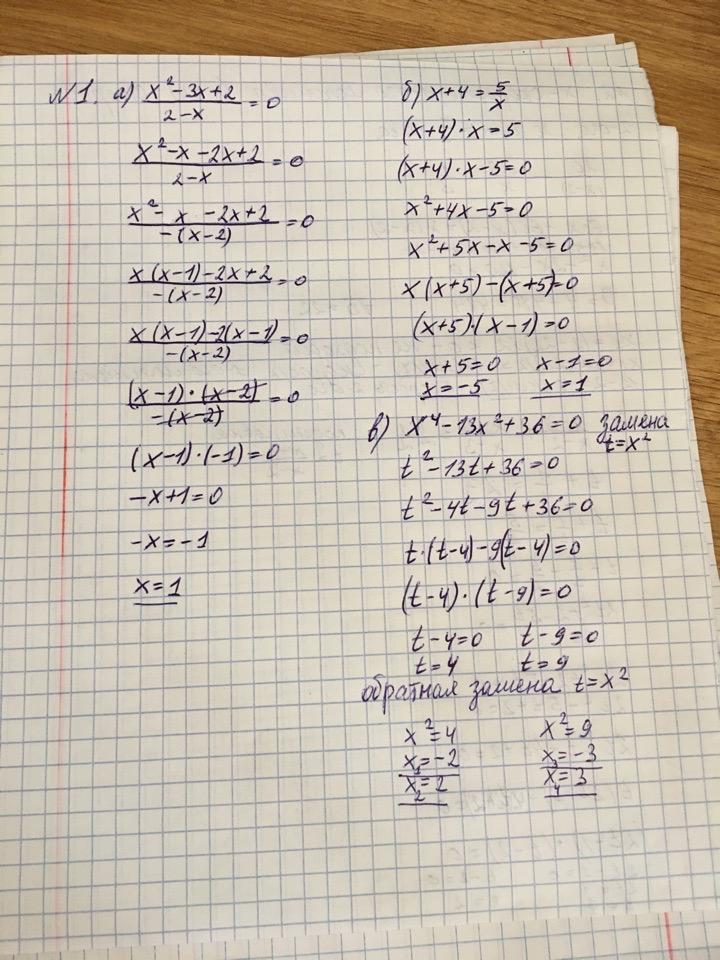 №1. а) (x²-3x+2)/(2-x) = 0
(x²-x-2x+2)/(2-x) = 0
(x²-x-2x+2)/(-(x-2)) = 0
(x(x-1)-2x+2)/(-(x-2)) = 0
(x(x-1)-2(x-1))/(-(x-2)) = 0
((x-1)·(x-2))/(-(x-2)) = 0
(x-1)·(-1)=0
-x+1=0
-x=-1
x=1
б) x+4=5/x
(x+4)·x=5
(x+4)·x-5=0
x²+4x-5=0
x²+5x-x-5=0
x(x+5)-(x+5)=0
(x+5)·(x-1)=0
x+5=0 x-1=0
x=-5 x=1
в) x⁴-13x²+36=0 замена
t=x²
t²-13t+36=0
t²-4t-9t+36=0
t·(t-4)-9(t-4)=0
(t-4)·(t-9)=0
t-4=0 t-9=0
t=4 t=9
обратная замена t=x²
x²=4 x²=9
x₁=-2 x₃=-3
x₂=2 x₄=3